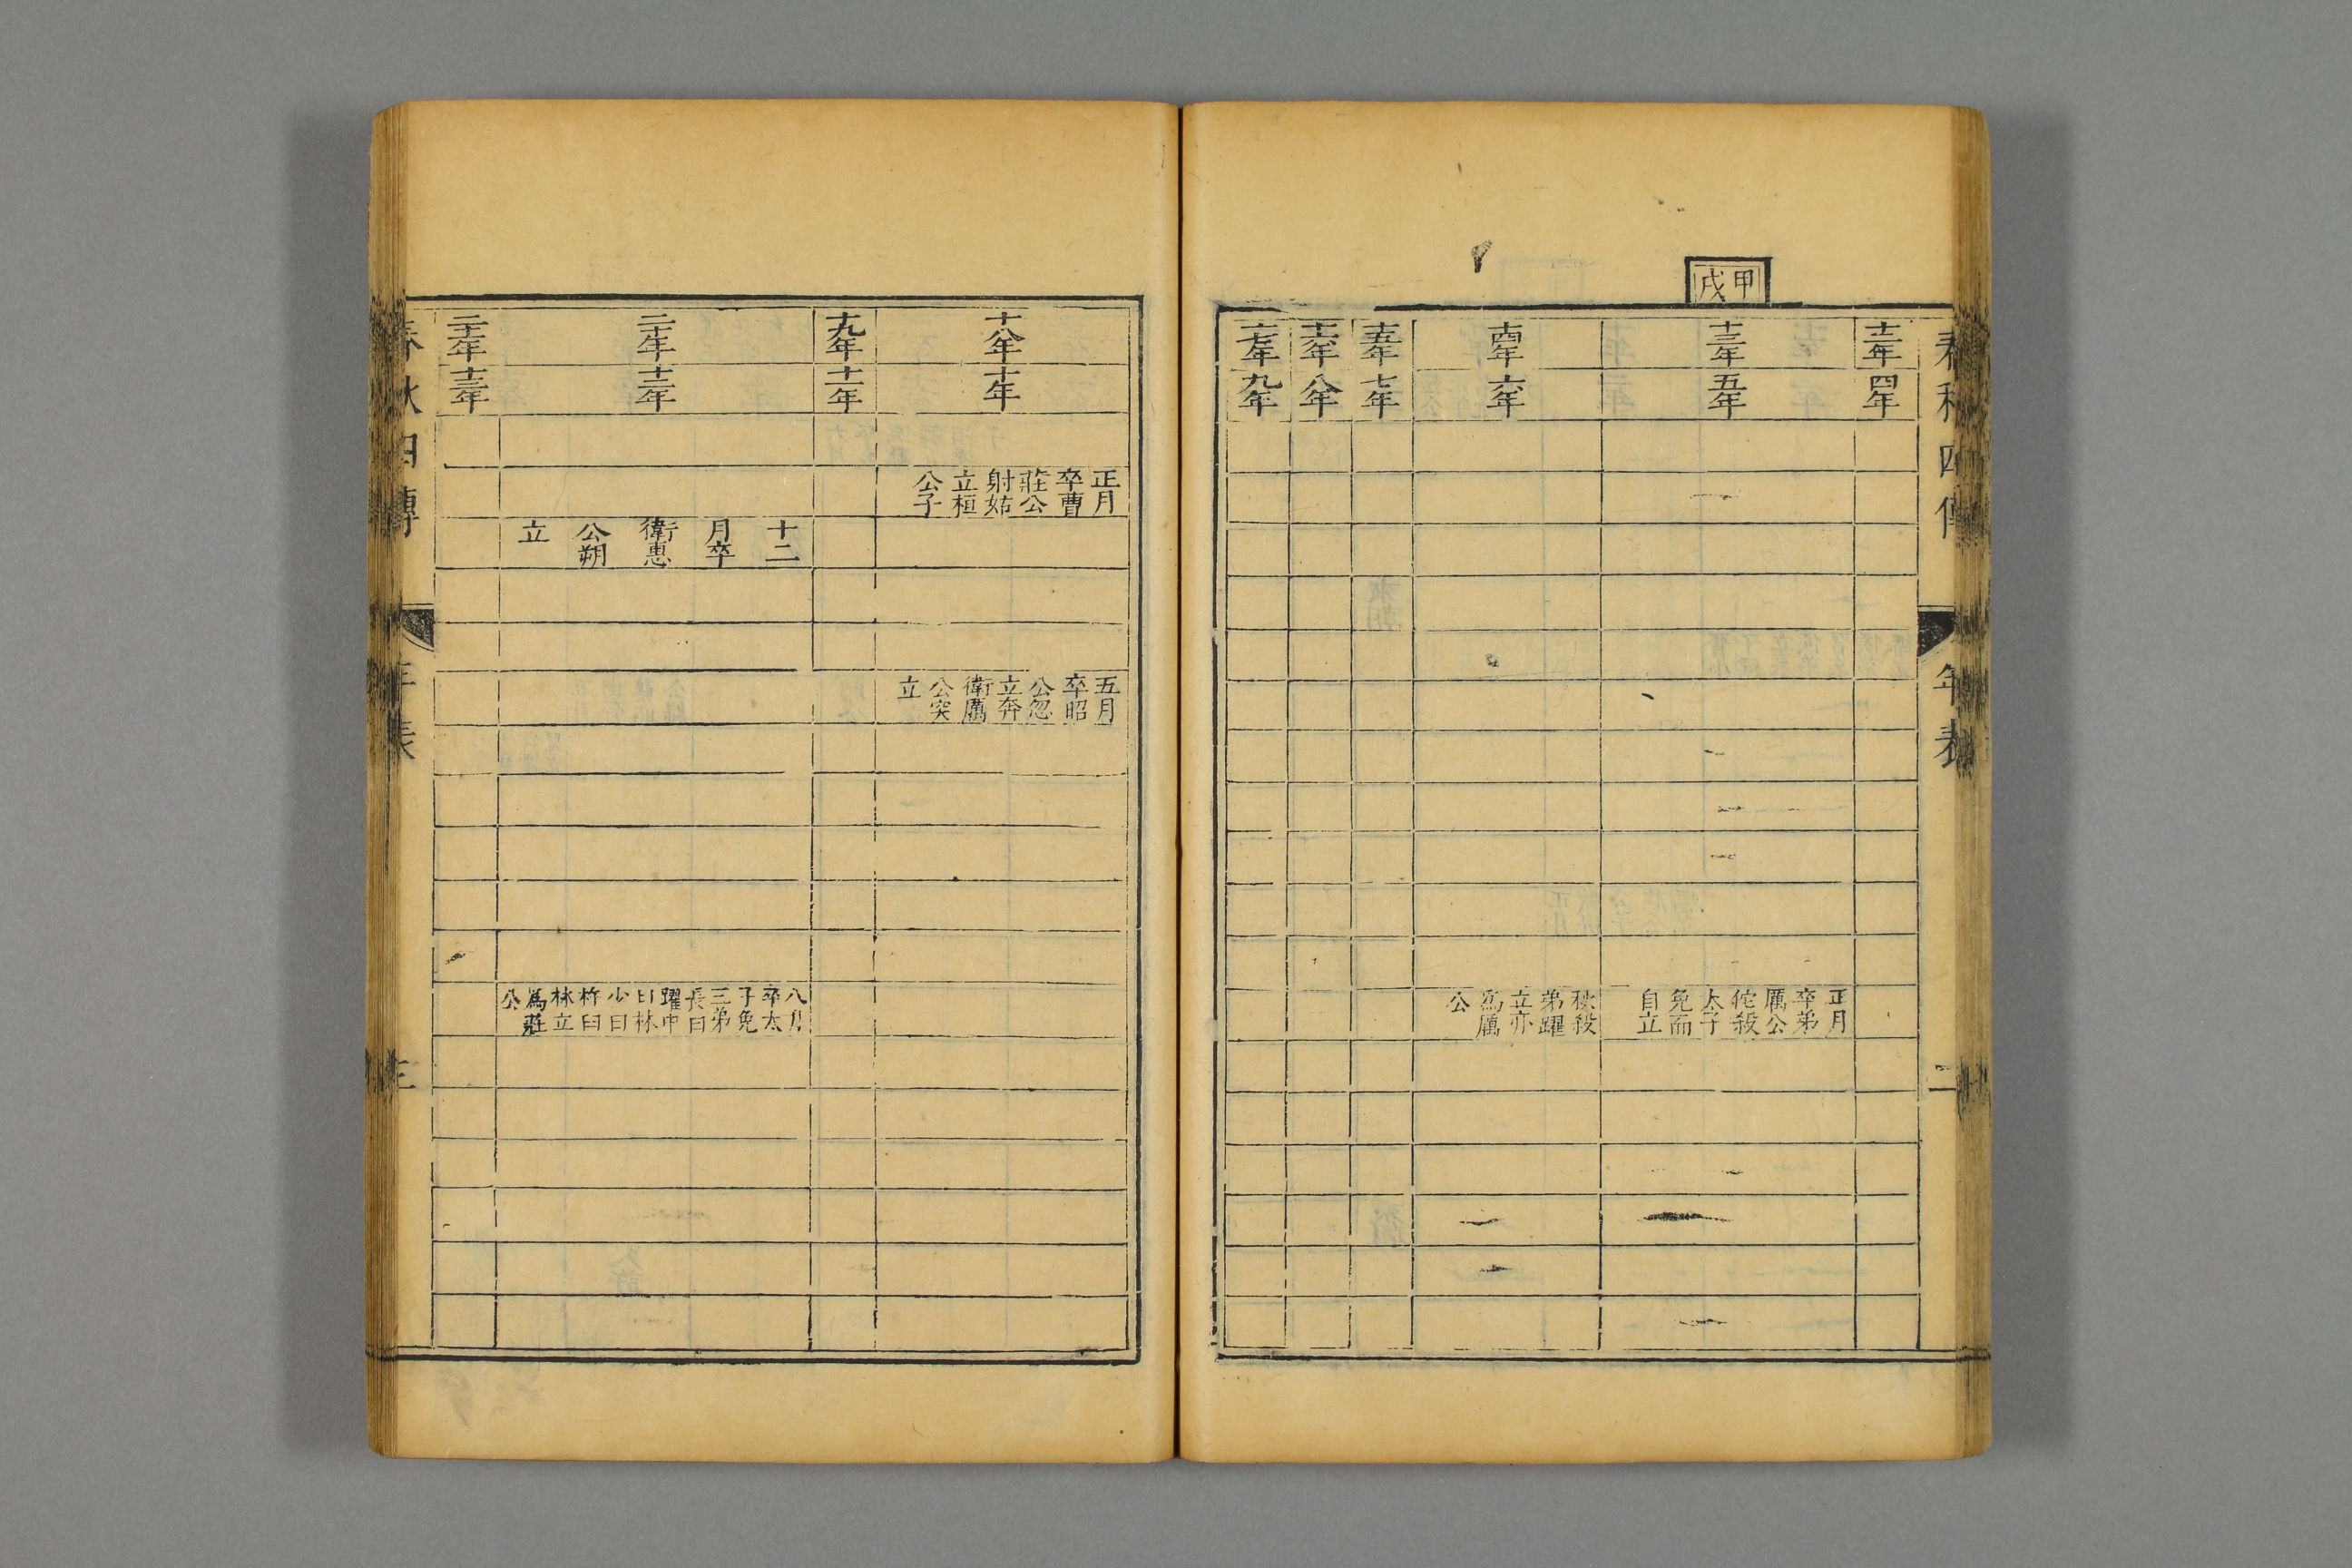 春秋四傳
年表
二
甲戌
十二年
四年
十三年
五年
正月卒弟厲公佗殺太子免而自立
十四年
六年
秋殺弟躍立亦爲厲公
十五年
七年
十六年
八年
十七年
九年
十八年
十年
正月卒曹莊公射姑立桓公子
五月卒昭公忽立奔衛厲公突立
十九年
十一年
二十年
十二年
十二月卒衛惠公朔立
八月卒太子免三弟長曰躍中曰林少曰杵臼林立爲莊公
二十一年
十三年
春秋四傳
年表
三